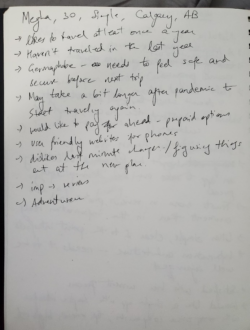 Megha, 30, Single, Calgary, AB
→ likes to travel at least once a year
→ Haven't travelled in the last year
→ Germaphobe - needs to feel safe and
secure before next trip
→ May take a bit longer after pandemic to
start travelling again
→ would like to pay ahead - prepaid options
→ user friendly websites for phones
→ dislikes last minute changes / figuring things
out at the new place
→ imp → reviews
→ Adventurous